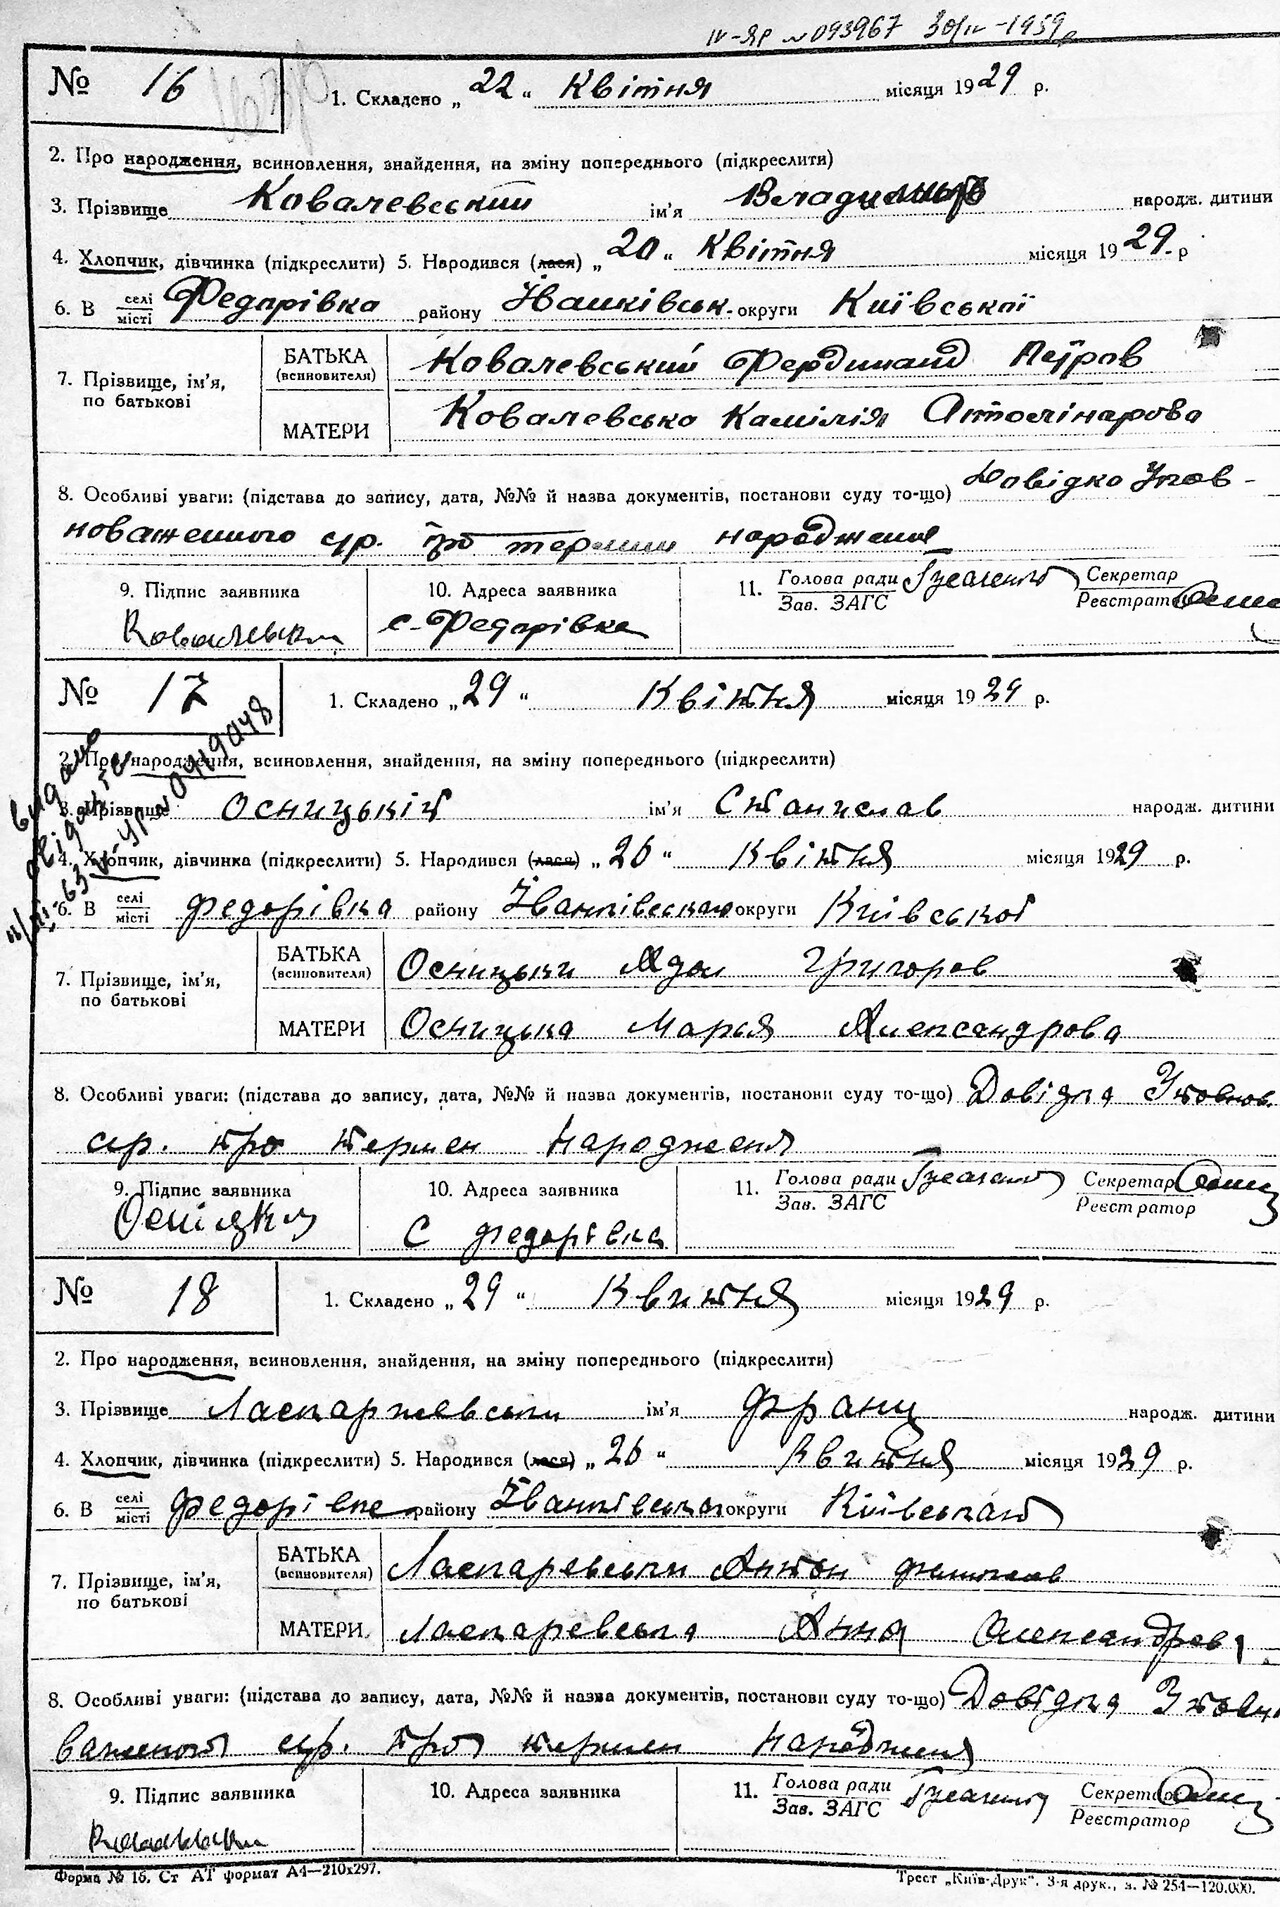 IV-ЯР №093967 30/IV-1959р
№ 16 1. Складено „22“ Квітня місяця 1929 р.
2. Про народження, всиновлення, знайдення, на зміну попереднього (підкреслити)
3. Прізвище Ковалевський ім'я Владимир народж. дитини
4. Хлопчик, дівчинка (підкреслити) 5. Народився (лася) „20“ Квітня місяця 1929 р
6. В селі/місті Федорівка району Іванківськ. округи Київської
7. Прізвище, ім'я, по батькові
БАТЬКА (всиновителя) Ковалевський Фердинанд Петров
МАТЕРИ Ковалевська Камілія
8. Особливі уваги: (підстава до запису, дата, №№ й назва документів, постанови суду то-що) Довідка Упов-
новаженного с/р. про термин народження
9. Підпис заявника 10. Адреса заявника 11. Голова ради/Зав. ЗАГС Секретар/Реєстратор
с. Федорівка
№ 17 1. Складено „29“ Квітня місяця 1929 р.
видано
2. Про народження, всиновлення, знайдення, на зміну попереднього (підкреслити)
3. Прізвище Осницький ім'я Станислав народж. дитини
4. Хлопчик, дівчинка (підкреслити) 5. Народився (лася) „26“ Квітня місяця 1929 р.
6. В селі/місті Федорівка району округи Київської
7. Прізвище, ім'я, по батькові
БАТЬКА (всиновителя) Осницьки Адам Григоров
МАТЕРИ Осницька Марья Александрова
8. Особливі уваги: (підстава до запису, дата, №№ й назва документів, постанови суду то-що) Довідка Уповнов.
с/р. про термен народженя
9. Підпис заявника 10. Адреса заявника 11. Голова ради/Зав. ЗАГС Секретар/Реєстратор
с Федорівка
№ 18 1. Складено „29“ Квитня місяця 1929 р.
2. Про народження, всиновлення, знайдення, на зміну попереднього (підкреслити)
3. Прізвище Ласкаржевськи ім'я Франц народж. дитини
4. Хлопчик, дівчинка (підкреслити) 5. Народився (лася) „26“ Квитня місяця 1929 р.
6. В селі/місті Федорівке району округи Київської
7. Прізвище, ім'я, по батькові
БАТЬКА (всиновителя) Ласкаревськи Антон
МАТЕРИ Ласкаревська Анна Олександрова
8. Особливі уваги: (підстава до запису, дата, №№ й назва документів, постанови суду то-що) Довідка Уповно
важеного с/р. про термен народженя
9. Підпис заявника 10. Адреса заявника 11. Голова ради/Зав. ЗАГС Секретар/Реєстратор
Форма № 16. Ст АТ формат А4—210х297. Трест „Київ-Друк“. 3-я друк., з. № 254—120.000.